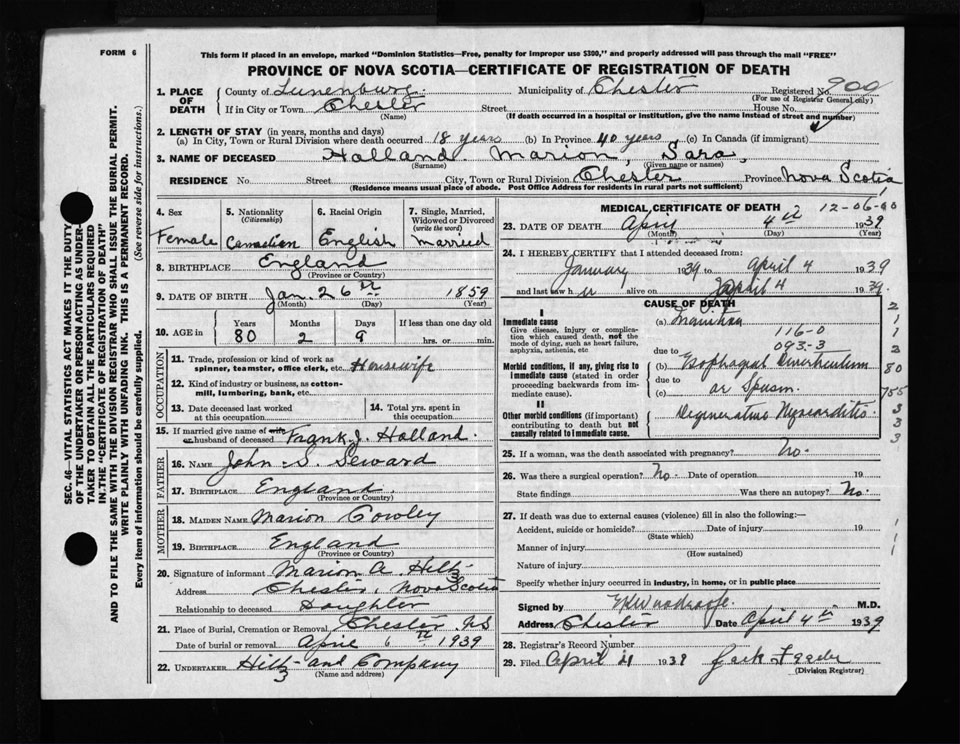 FORM 6
This form if placed in an envelope, marked "Dominion Statistics—Free, penalty for improper use $300," and properly addressed will pass through the mail "FREE"
PROVINCE OF NOVA SCOTIA—CERTIFICATE OF REGISTRATION OF DEATH
SEC. 46—VITAL STATISTICS ACT MAKES IT THE DUTY
OF THE UNDERTAKER OR PERSON ACTING AS UNDER-
TAKER TO OBTAIN ALL THE PARTICULARS REQUIRED
IN THE "CERTIFICATE OF REGISTRATION OF DEATH"
AND TO FILE THE SAME WITH THE DIVISION REGISTRAR WHO SHALL ISSUE THE BURIAL PERMIT.
WRITE PLAINLY WITH UNFADING INK. THIS IS A PERMANENT RECORD.
Every item of information should be carefully supplied. (See reverse side for instructions.)
1. PLACE OF DEATH County of Lunenburg Municipality of Chester Registered No. 900
(For use of Registrar General only)
If in City or Town Chester Street House No.
(Name) (If death occurred in a hospital or institution, give the name instead of street and number)
2. LENGTH OF STAY (in years, months and days)
(a) In City, Town or Rural Division where death occurred 18 years (b) In Province 40 years (c) In Canada (if immigrant)
3. NAME OF DECEASED Holland. Marion, Sara,
(Surname) (Given name or names)
RESIDENCE No. Street City, Town or Rural Division Chester Province Nova Scotia
(Residence means usual place of abode. Post Office Address for residents in rural parts not sufficient)
4. Sex Female
5. Nationality (Citizenship) Canadian
6. Racial Origin English
7. Single, Married, Widowed or Divorced (write the word) Married
8. BIRTHPLACE England
(Province or Country)
9. DATE OF BIRTH Jan. 26th 1859
(Month) (Day) (Year)
10. AGE in Years 80 Months 2 Days 9 If less than one day old hrs. or min.
OCCUPATION
11. Trade, profession or kind of work as spinner, teamster, office clerk, etc. Housewife
12. Kind of industry or business, as cotton-mill, lumbering, bank, etc.
13. Date deceased last worked at this occupation
14. Total yrs. spent in this occupation
15. If married give name of wife or husband of deceased Frank J. Holland.
FATHER
16. NAME John S. Seward
17. BIRTHPLACE England.
(Province or Country)
MOTHER
18. MAIDEN NAME Marion Cowley
19. BIRTHPLACE England
(Province or Country)
20. Signature of informant Marion A. Hiltz
Address Chester, Nova Scotia
Relationship to deceased Daughter
21. Place of Burial, Cremation or Removal Chester N.S
Date of burial or removal April 6th 1939
22. UNDERTAKER Hiltz and Company
(Name and address)
MEDICAL CERTIFICATE OF DEATH 12-06-00
23. DATE OF DEATH April 4th 1939
(Month) (Day) (Year)
24. I HEREBY CERTIFY that I attended deceased from:
January 1939 to April 4 1939
and last saw her alive on April 4 1939.
CAUSE OF DEATH
I
Immediate cause
Give disease, injury or complication which caused death, not the mode of dying, such as heart failure, asphyxia, asthenia, etc.
(a) Inanition
116-0
093-3
Morbid conditions, if any, giving rise to immediate cause (stated in order proceeding backwards from immediate cause).
due to
(b) Esophageal Diverticulum
due to
(c) or Spasm.
II
Other morbid conditions (if important) contributing to death but not causally related to immediate cause.
Degenerative Myocarditis
2
1
1
3
80
755
3
3
3
25. If a woman, was the death associated with pregnancy? No.
26. Was there a surgical operation? No. Date of operation 19
State findings Was there an autopsy? No.
27. If death was due to external causes (violence) fill in also the following:—
Accident, suicide or homicide? Date of injury 19
(State which)
Manner of injury
(How sustained)
Nature of injury
Specify whether injury occurred in industry, in home, or in public place
Signed by M.D.
Address Chester Date April 4th 1939
28. Registrar's Record Number
29. Filed April 1939
(Division Registrar)